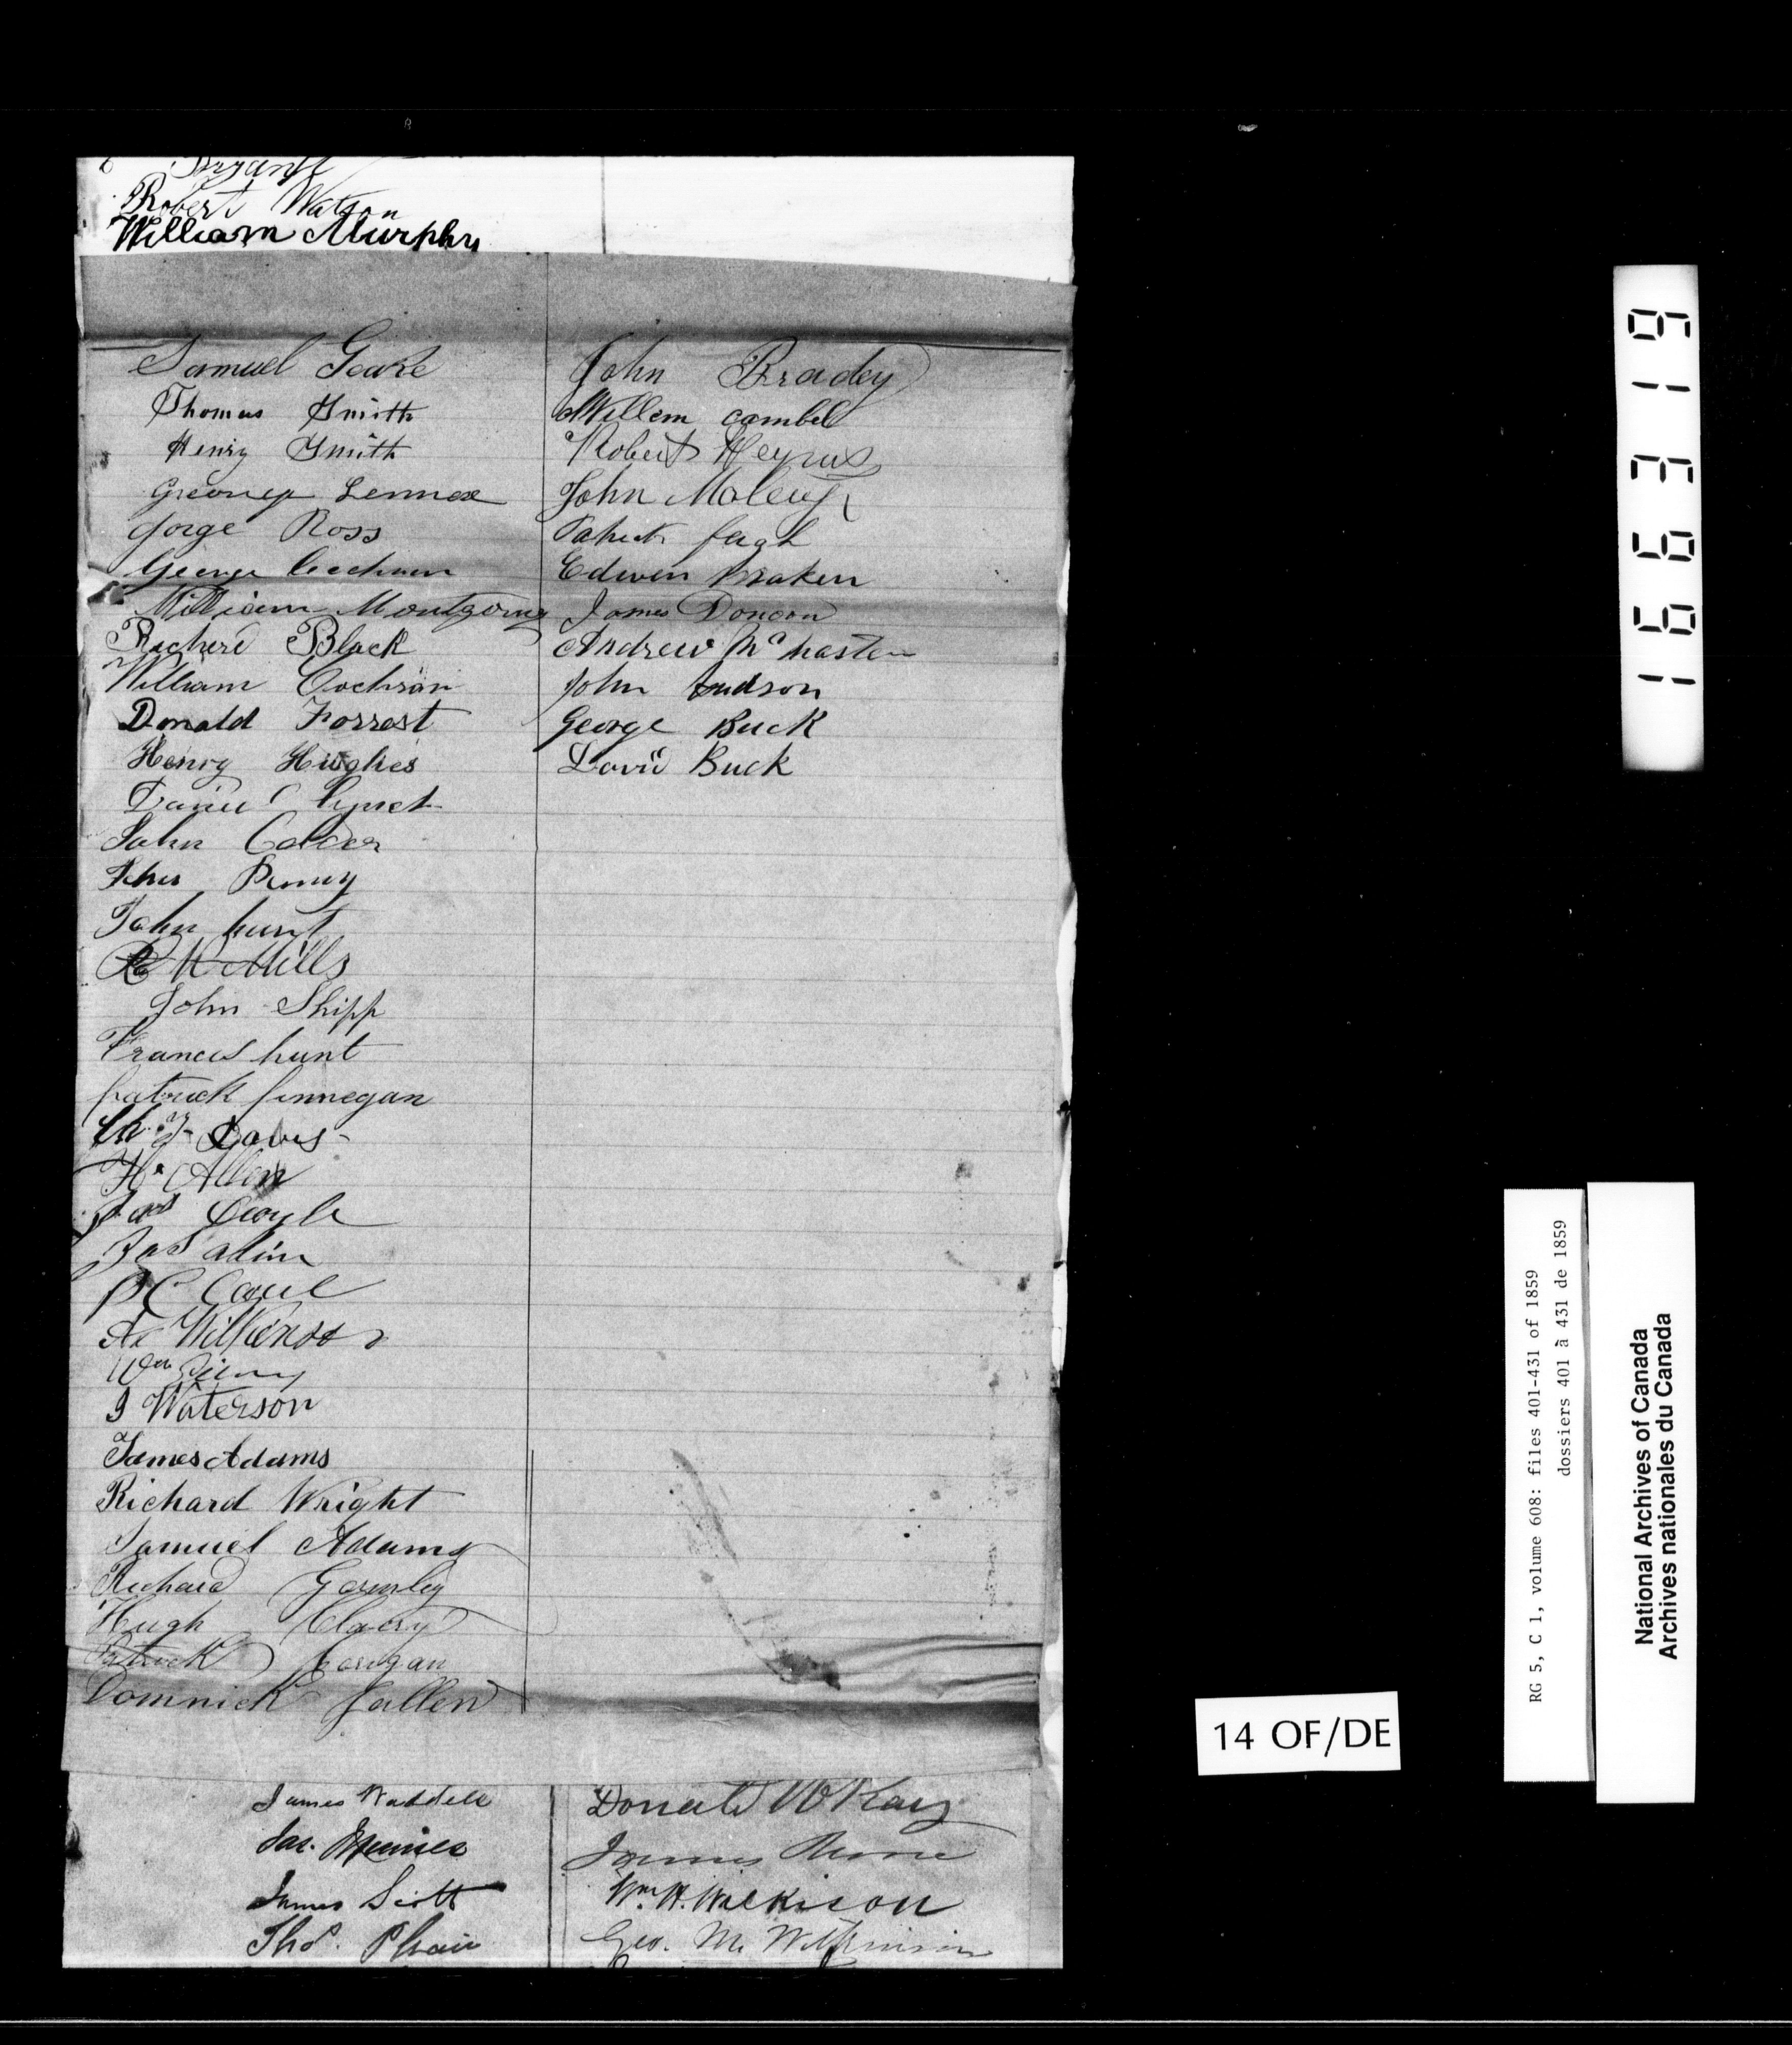 Bryant
Robert Watson
William Murphy
Samuel Geake
Thomas Smith
Henry Smith
Lennox
Jorge Ross
George
William Montgomy
Richerd Black
William Cochran
Donald Forrest
Henry Hughes
Daniel Lynch
John Calder
Penny
John hunt
R W Mills
John Shipp
Francis hunt
patrick finnegan
Davis
H. Allen
Jas Coyle
Jas
P C
Wilkinson
Wm
J Waterson
James Adams
Richard Wright
Samuel Adams
Richard Gormley
Hugh Clacry
Patrick Corigan
Domnick fallen
John Bradey
Willem cambel
Robert
John
Edwen braken
James Doncan
Andrew
John Judson
George Buck
Buck
James Waddell
Jas.
James Scott
Thos. Phair
Donald McKay
James
Wm. H. Wilkison
Geo. M. Wilkinson
166319
14 OF/DE
RG 5, C 1, volume 608: files 401-431 of 1859
dossiers 401 à 431 de 1859
National Archives of Canada
Archives nationales du Canada